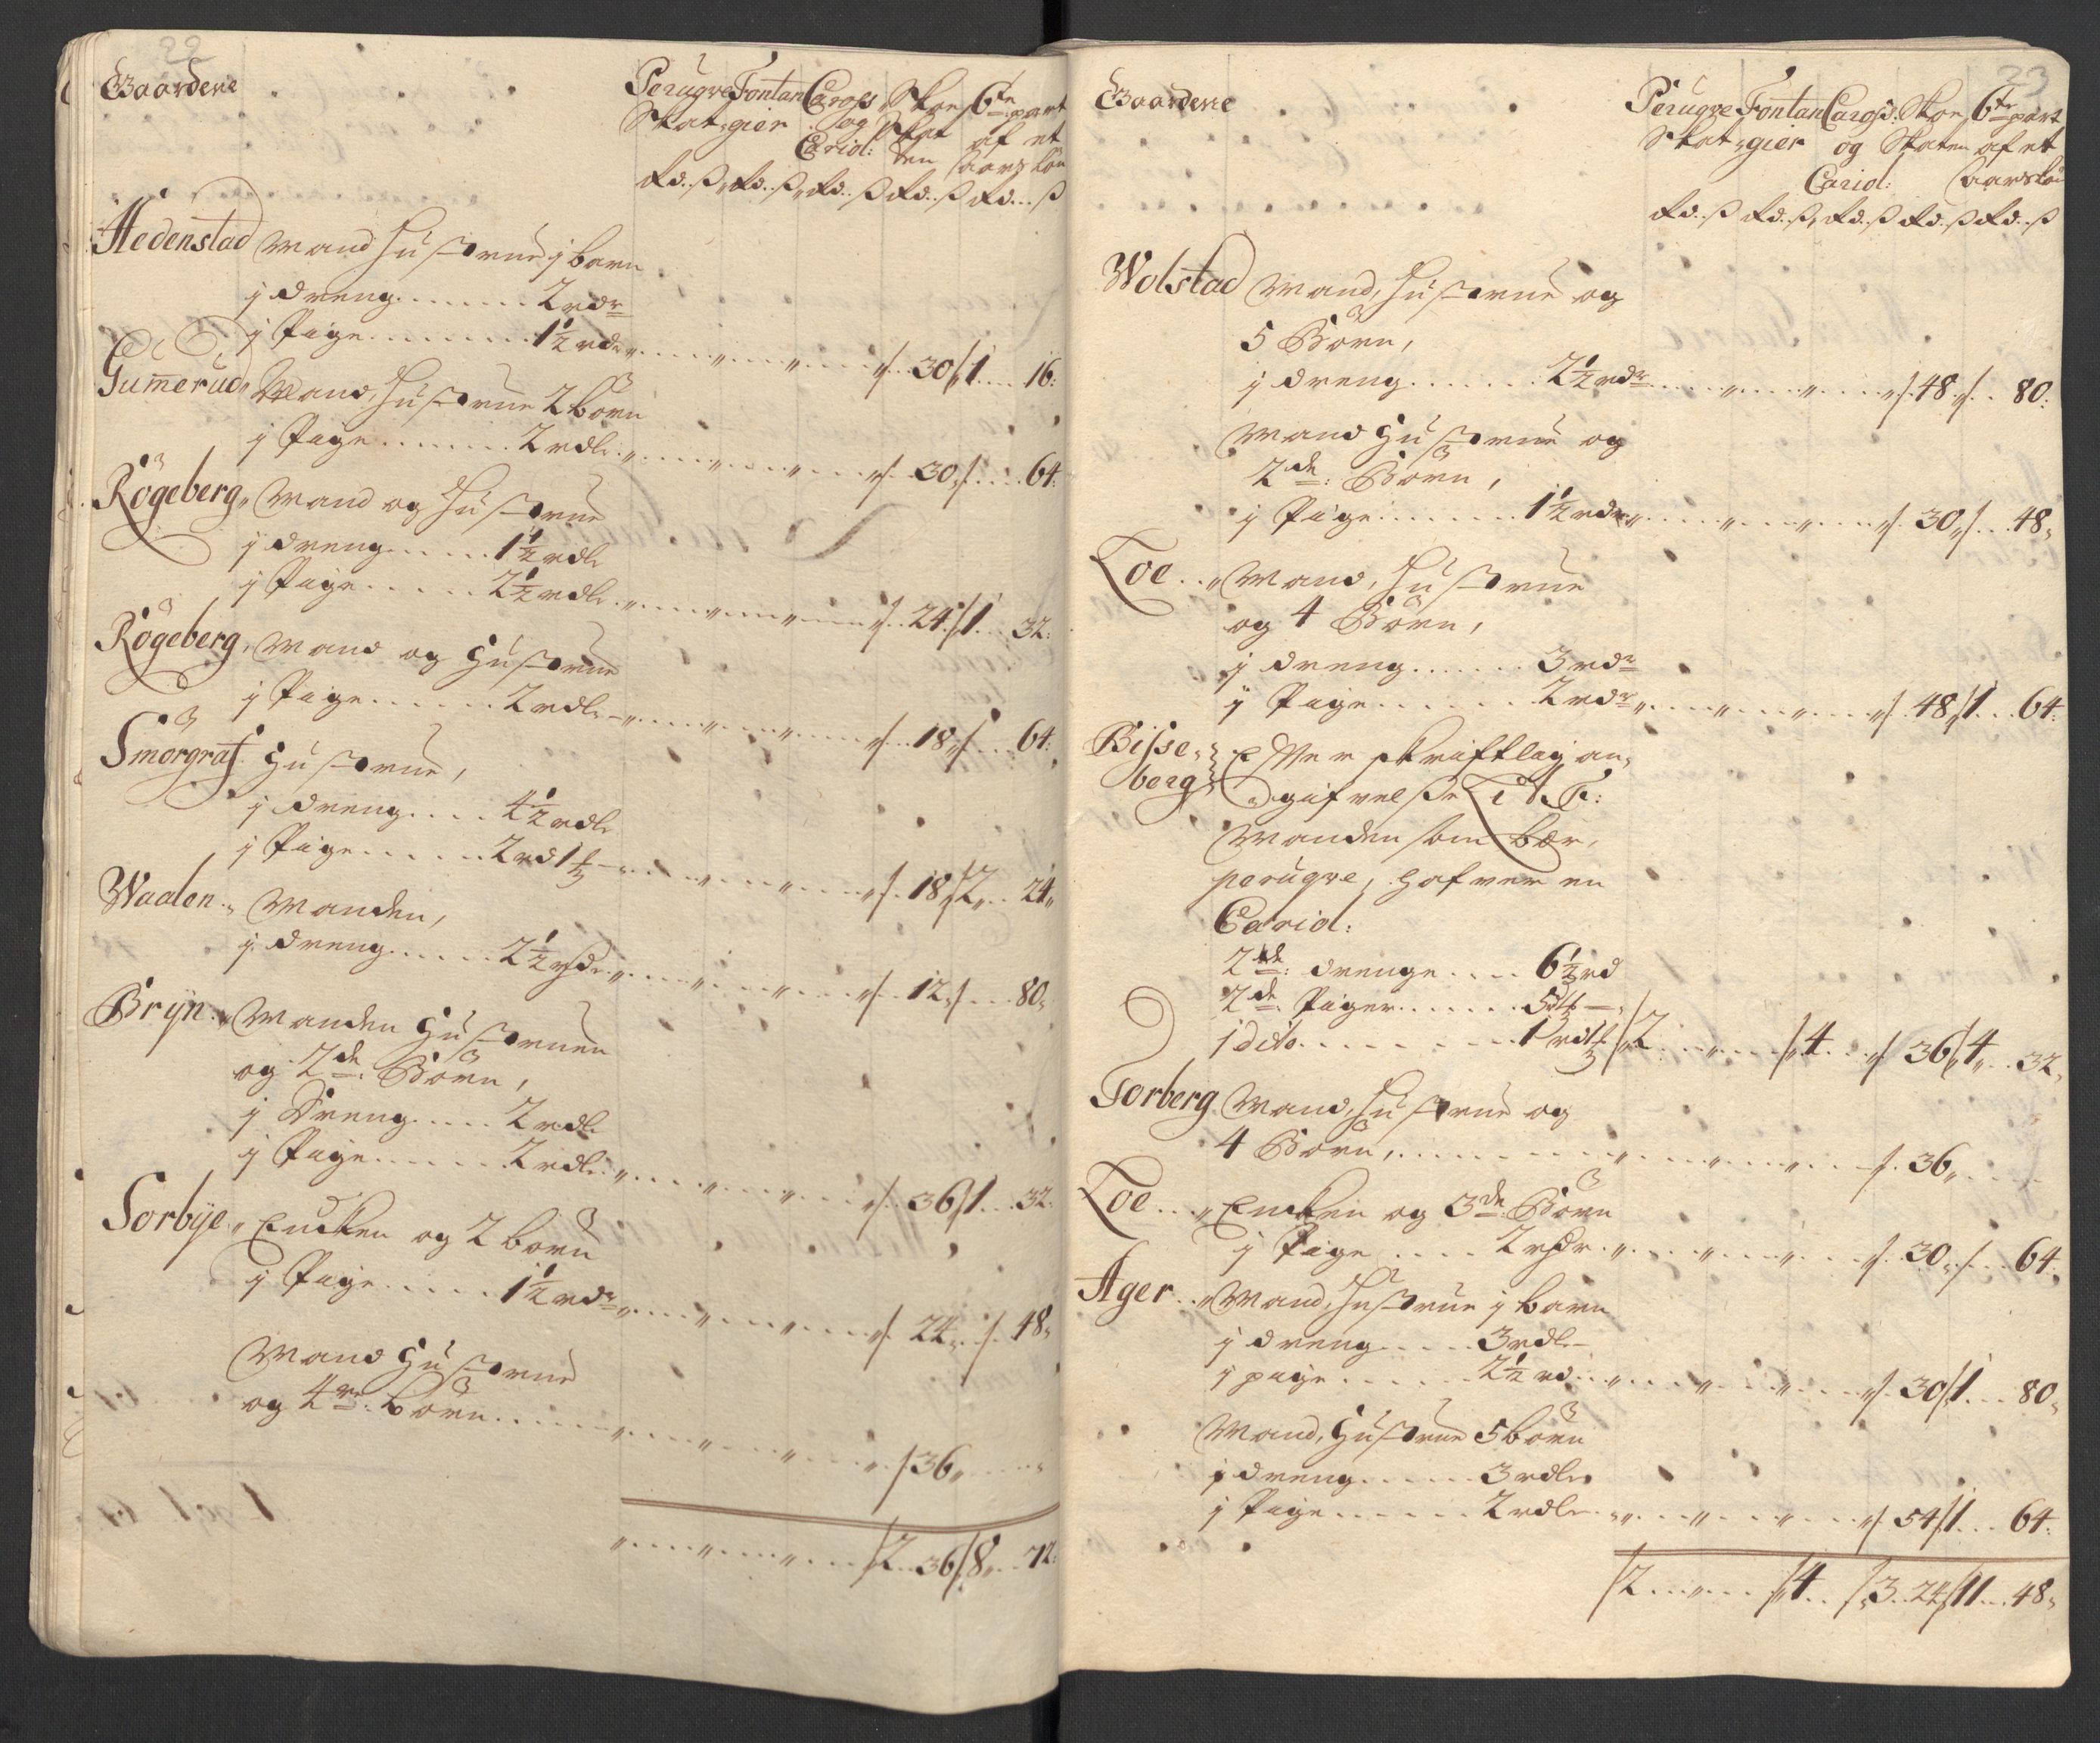 22
Gaardene
Perugve Fontan Caross Skoe 6te part
Skat gier og Skat af et
Cariol: ten Aars løn
Rd. ß Rd. ß Rd. ß Rd. ß Rd. ß
Hedenstad Mand Hustrue j barn
j dreng ...... 2 rdr
j Pige ...... 1½ rdr „ „ „ „ 30 1 16:
Gumerud Mand, Hustrue 2 børn
j Pige ...... 2 rdlr „ „ „ „ 30 „ 64:
Rögeberg Mand og Hustrue
j dreng ..... 1½ rdlr
j Pige ..... 2½ rdlr „ „ „ „ 24 1 32:
Rögeberg, Mand og Hustrue
j Pige ...... 2 rdlr „ „ „ „ 18 „ 64:
Smörgraf Hustrue,
j dreng .... 4½ rdlr
j Pige ..... 2 rd 1 „ „ „ „ 18 2 24
Waalen Manden,
j dreng ..... 2½ rdr „ „ „ „ 12 „ 80
Bryn Manden Hustruen
og 2de Børn,
j Dreng ..... 2 rdlr
j Pige ...... 2 rdlr „ „ „ „ 36 1 32
Sorbye Encken og 2 børn
j Pige ..... 1½ rdr „ „ „ „ 24 „ 48
Mand Hustrue
og 4re børn ..... „ „ „ „ 36 „
„ „ „ 2 36 8 72:
23
Gaardene
Perugve Fontan Caross: Skoe 6te part
Skat gier og Skaten af et
Cariol: Aarsløn
Rd. ß Rd. ß Rd. ß Rd. ß Rd. ß
Wolstad Mand, Hustrue og
5 Børn,
j dreng ...... 2½ rdr „ „ „ „ 48 „ 80:
Mand Hustrue og
2de: Børn,
j Pige ...... 1½ rdr „ „ „ „ 30 „ 48
Loe Mand, Hustrue
og 4 Børn,
j dreng ...... 3 rdr
j Pige ...... 2 rdr „ „ „ „ 48 1 64:
Bisse- Efter skriftlig an-
berg gifvelse
Manden som bær
perugve, hafver en
Cariol:
2de: drenge .... 6½ rd
2de: Piger ......
1 dito ......... 2 „ 4 „ 36 4 32
Torberg Mand, Hustrue og
4 Børn, ........ „ „ „ „ 36 „
Loe Encken og 3de Børn
j Pige .... 2 rdr „ „ „ „ 30 „ 64
Ager Mand, Hustrue j barn
j dreng ..... 3 rdlr
j pige ...... 2½ rd „ „ „ „ 30 1 80
Mand, Hustrue 5 børn
j dreng ..... 3 rdlr
j Pige ...... 2 rdlr „ „ „ „ 54 1 64:
2 „ 4 „ 3 24 11 48